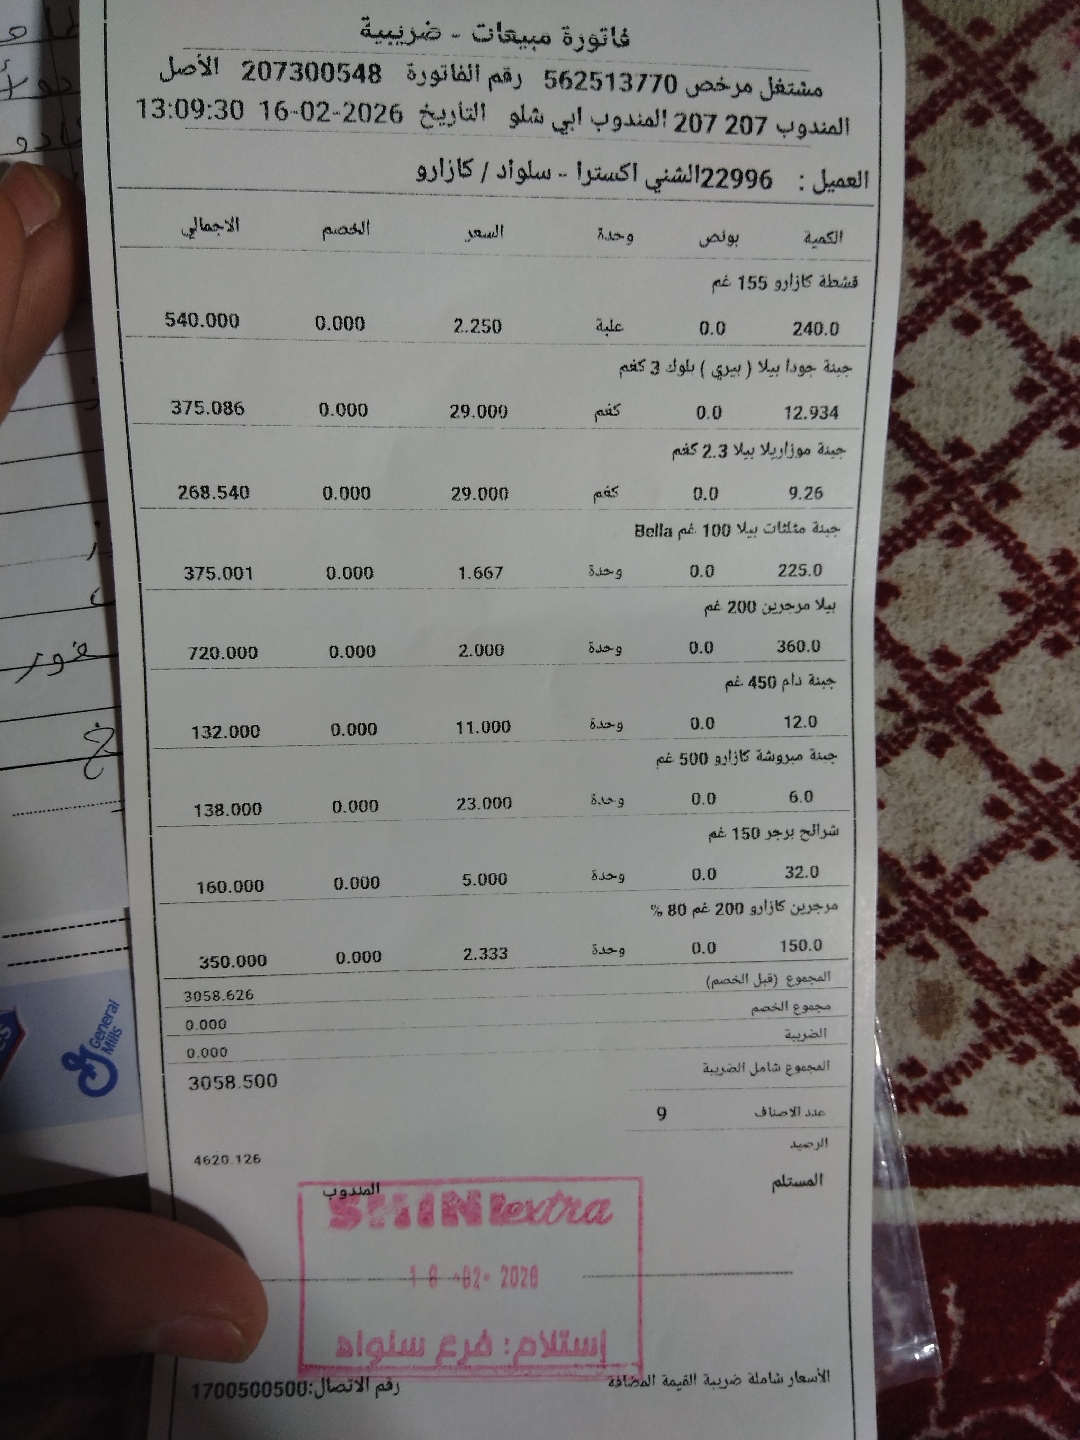 فاتورة مبيعات - ضريبية
مشتغل مرخص 562513770 رقم الفاتورة 207300548 الأصل
المندوب 207 207 المندوب ابي شلو التاريخ 16-02-2026 13:09:30
العميل : 22996الشني اكسترا -- سلواد / كازارو
الكمية بونص وحدة السعر الخصم الاجمالي
قشطة كازارو 155 غم
240.0 0.0 علبة 2.250 0.000 540.000
جبنة جودا بيلا ( بيري ) بلوك 3 كغم
12.934 0.0 كغم 29.000 0.000 375.086
جبنة موزاريلا بيلا 2.3 كغم
9.26 0.0 كغم 29.000 0.000 268.540
جبنة مثلثات بيلا 100 غم Bella
225.0 0.0 وحدة 1.667 0.000 375.001
بيلا مرجرين 200 غم
360.0 0.0 وحدة 2.000 0.000 720.000
جبنة دام 450 غم
12.0 0.0 وحدة 11.000 0.000 132.000
جبنة مبروشة كازارو 500 غم
6.0 0.0 وحدة 23.000 0.000 138.000
شرائح برجر 150 غم
32.0 0.0 وحدة 5.000 0.000 160.000
مرجرين كازارو 200 غم 80 %
150.0 0.0 وحدة 2.333 0.000 350.000
المجموع (قبل الخصم) 3058.626
مجموع الخصم 0.000
الضريبة 0.000
المجموع شامل الضريبة 3058.500
عدد الاصناف 9
الرصيد 4620.126
المستلم المندوب
SHINI extra
إستلام: فرع سلواد
الأسعار شاملة ضريبة القيمة المضافة رقم الاتصال:1700500500
General
Mills